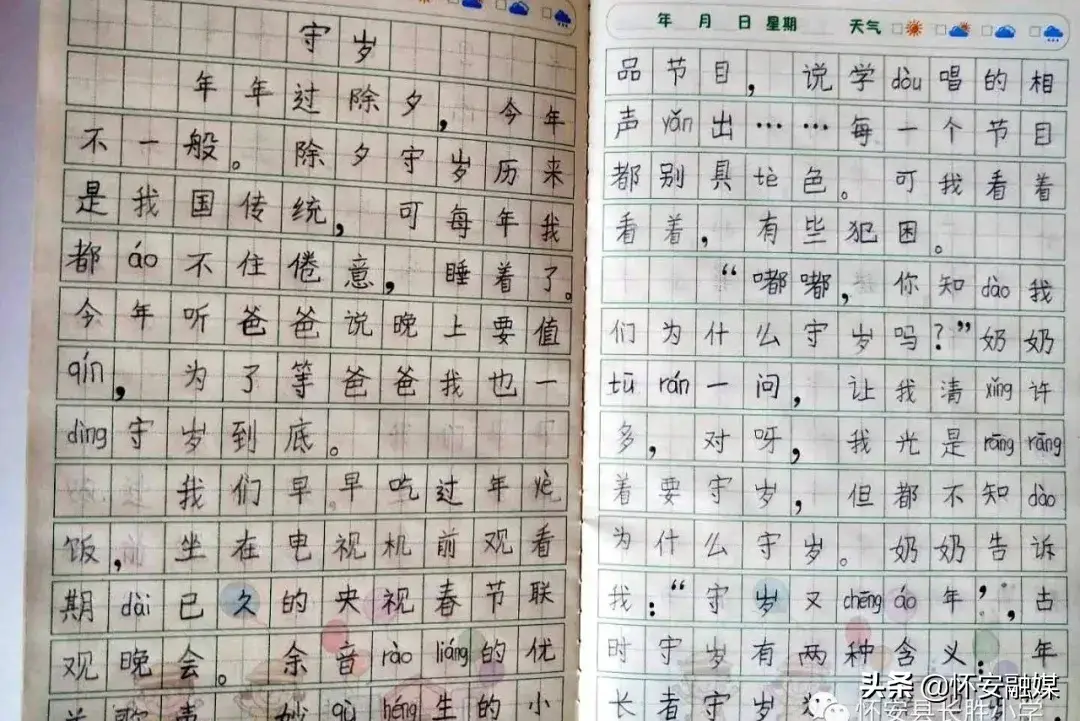 守岁
年年过除夕，今年
不一般。除夕守岁历来
是我国传统，可每年我
都áo不住倦意，睡着了。
今年听爸爸说晚上要值
qín，为了等爸爸我也一
dìng守岁到底。
我们早早吃过年yè
饭，坐在电视机前观看
期dài已久的央视春节联
观晚会。余音rào liáng的优
歌声 妙qù héng生的小
年 月 日 星期 天气
品节目，说学dòu唱的相
声yǎn出……每一个节目
都别具tè色。可我看着
看着，有些犯困。
“嘟嘟，你知dào我
们为什么守岁吗？”奶奶
tū rán一问，让我清xǐng许
多，对呀，我光是rāng rāng
着要守岁，但都不知dào
为什么守岁。奶奶告诉
我：“守岁又chēng áo年’，古
时守岁有两种含义：年
长者守岁
头条 @怀安融媒
怀安县长胜小学